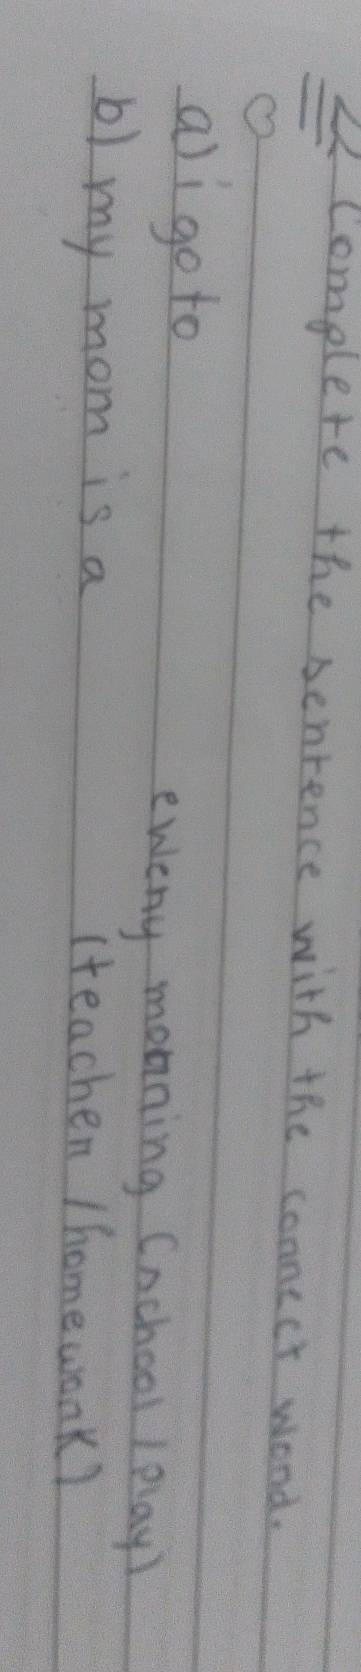 2) Complete the sentence with the connect word.
a) i go to eweny morning (school / play)
b) my mom is a (teacher / homework)